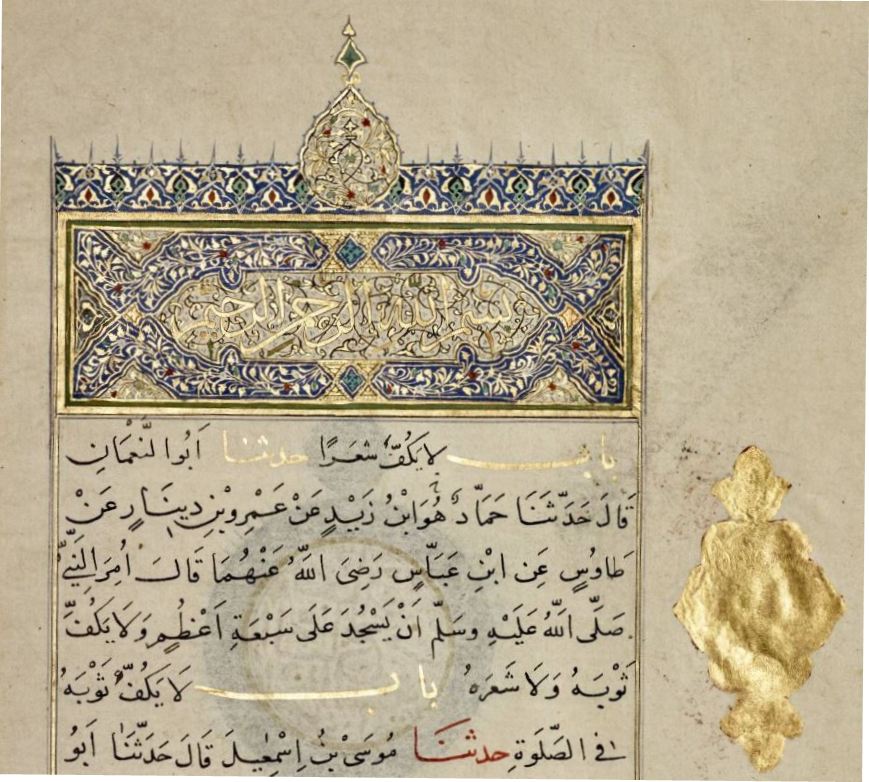 بسم الله الرحمن الرحيم
باب لا يَكُفُّ شَعَرًا حدثنا اَبُوا النُّعْمَانِ
قَالَ حَدَّثَنَا حَمَّادٌ هُوَ ابْنُ زَيْدٍ عَنْ عَمْرِو بْنِ دِينَارٍ عَنْ
طَاوُسٍ عَنِ ابْنِ عَبَّاسٍ رَضِىَ اللّٰهُ عَنْهُمَا قَالَ اُمِرَ النَّبِىُّ
صَلَّى اللّٰهُ عَلَيْهِ وسَلَّمَ اَنْ يَسْجُدَ عَلَى سَبْعَةِ اَعْظُمٍ وَلَا يَكُفَّ
ثَوْبَهُ وَلَا شَعَرَهُ باب لَا يَكُفُّ ثَوْبَهُ
فى الصَّلٰوةِ حدثنا مُوسَى بْنُ اِسْمٰعِيلَ قَالَ حَدَّثَنَا اَبُو